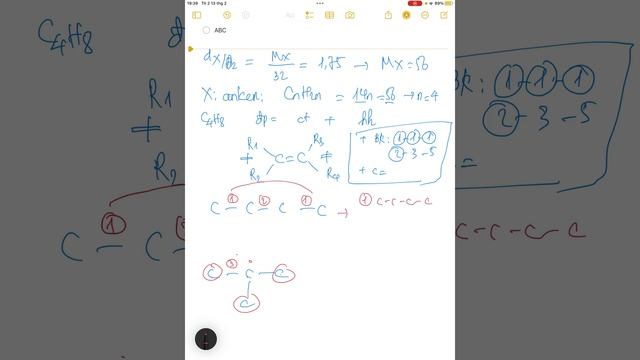 19:39 Th 2 13 thg 2
89%
ABC
dX/O2 = MX/32 = 1,75 → MX = 56
X: anken: CnH2n = 14n = 56 → n = 4
C4H8 đp = ct + hh
R1 R3
C = C
R2 R4
≠ ≠
+ BR: 1-1-1
2-3-5
+ C =
C -1- C -2- C -1- C → 1 C-C-C-C
C -3- C - C
C